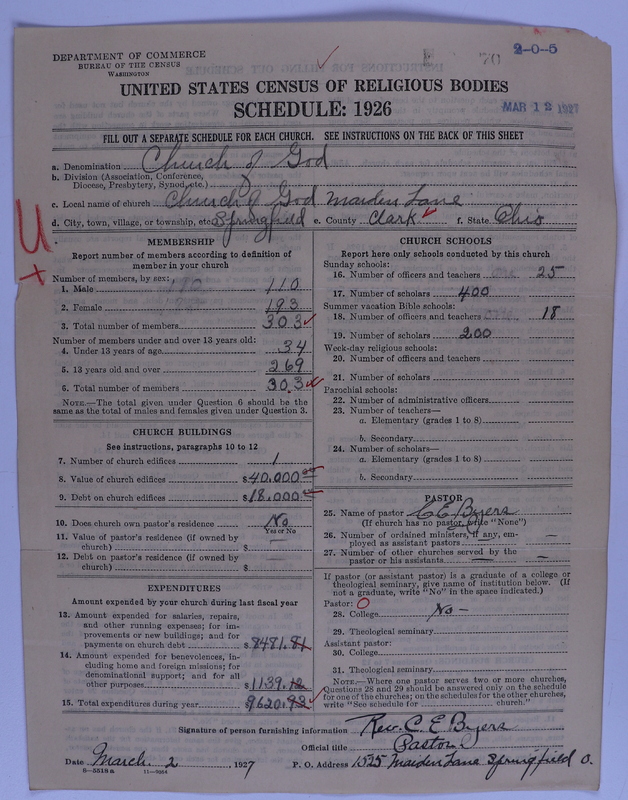 DEPARTMENT OF COMMERCE
BUREAU OF THE CENSUS
WASHINGTON
2-0-5
UNITED STATES CENSUS OF RELIGIOUS BODIES
SCHEDULE: 1926
MAR 12 1927
FILL OUT A SEPARATE SCHEDULE FOR EACH CHURCH. SEE INSTRUCTIONS ON THE BACK OF THIS SHEET
a. Denomination Church of God
b. Division (Association, Conference,
Diocese, Presbytery, Synod, etc.)
c. Local name of church Church of God Maiden Lane
d. City, town, village, or township, etc. Springfield e. County Clark f. State Ohio
MEMBERSHIP
Report number of members according to definition of
member in your church
Number of members, by sex:
1. Male 110
2. Female 193
3. Total number of members 303
Number of members under and over 13 years old:
4. Under 13 years of age 34
5. 13 years old and over 269
6. Total number of members 303
NOTE.—The total given under Question 6 should be the
same as the total of males and females given under Question 3.
CHURCH BUILDINGS
See instructions, paragraphs 10 to 12
7. Number of church edifices 1
8. Value of church edifices $40,000
9. Debt on church edifices $18,000
10. Does church own pastor's residence No
Yes or No
11. Value of pastor's residence (if owned by
church) $ —
12. Debt on pastor's residence (if owned by
church) $
EXPENDITURES
Amount expended by your church during last fiscal year
13. Amount expended for salaries, repairs,
and other running expenses; for im-
provements or new buildings; and for
payments on church debt $8481.81
14. Amount expended for benevolences, in-
cluding home and foreign missions; for
denominational support; and for all
other purposes $1139.12
15. Total expenditures during year $9620.93
CHURCH SCHOOLS
Report here only schools conducted by this church
Sunday schools:
16. Number of officers and teachers 25
17. Number of scholars 400
Summer vacation Bible schools:
18. Number of officers and teachers 18
19. Number of scholars 200
Week-day religious schools:
20. Number of officers and teachers
21. Number of scholars
Parochial schools:
22. Number of administrative officers
23. Number of teachers—
a. Elementary (grades 1 to 8)
b. Secondary
24. Number of scholars—
a. Elementary (grades 1 to 8)
b. Secondary
PASTOR
25. Name of pastor C E Byers
(If church has no pastor, write "None")
26. Number of ordained ministers, if any, em-
ployed as assistant pastors —
27. Number of other churches served by the
pastor or his assistants —
If pastor (or assistant pastor) is a graduate of a college or
theological seminary, give name of institution below. (If
not a graduate, write "No" in the space indicated.)
Pastor:
28. College No-
29. Theological seminary
Assistant pastor:
30. College
31. Theological seminary
NOTE.—Where one pastor serves two or more churches,
Questions 28 and 29 should be answered only on the schedule
for one of the churches; on the schedules for the other churches,
write "See schedule for church."
Signature of person furnishing information Rev. C. E Byers
Official title Pastor
Date March 2, 1927 P. O. Address 1525 Maiden Lane Springfield O.
8-5518a 11-9064